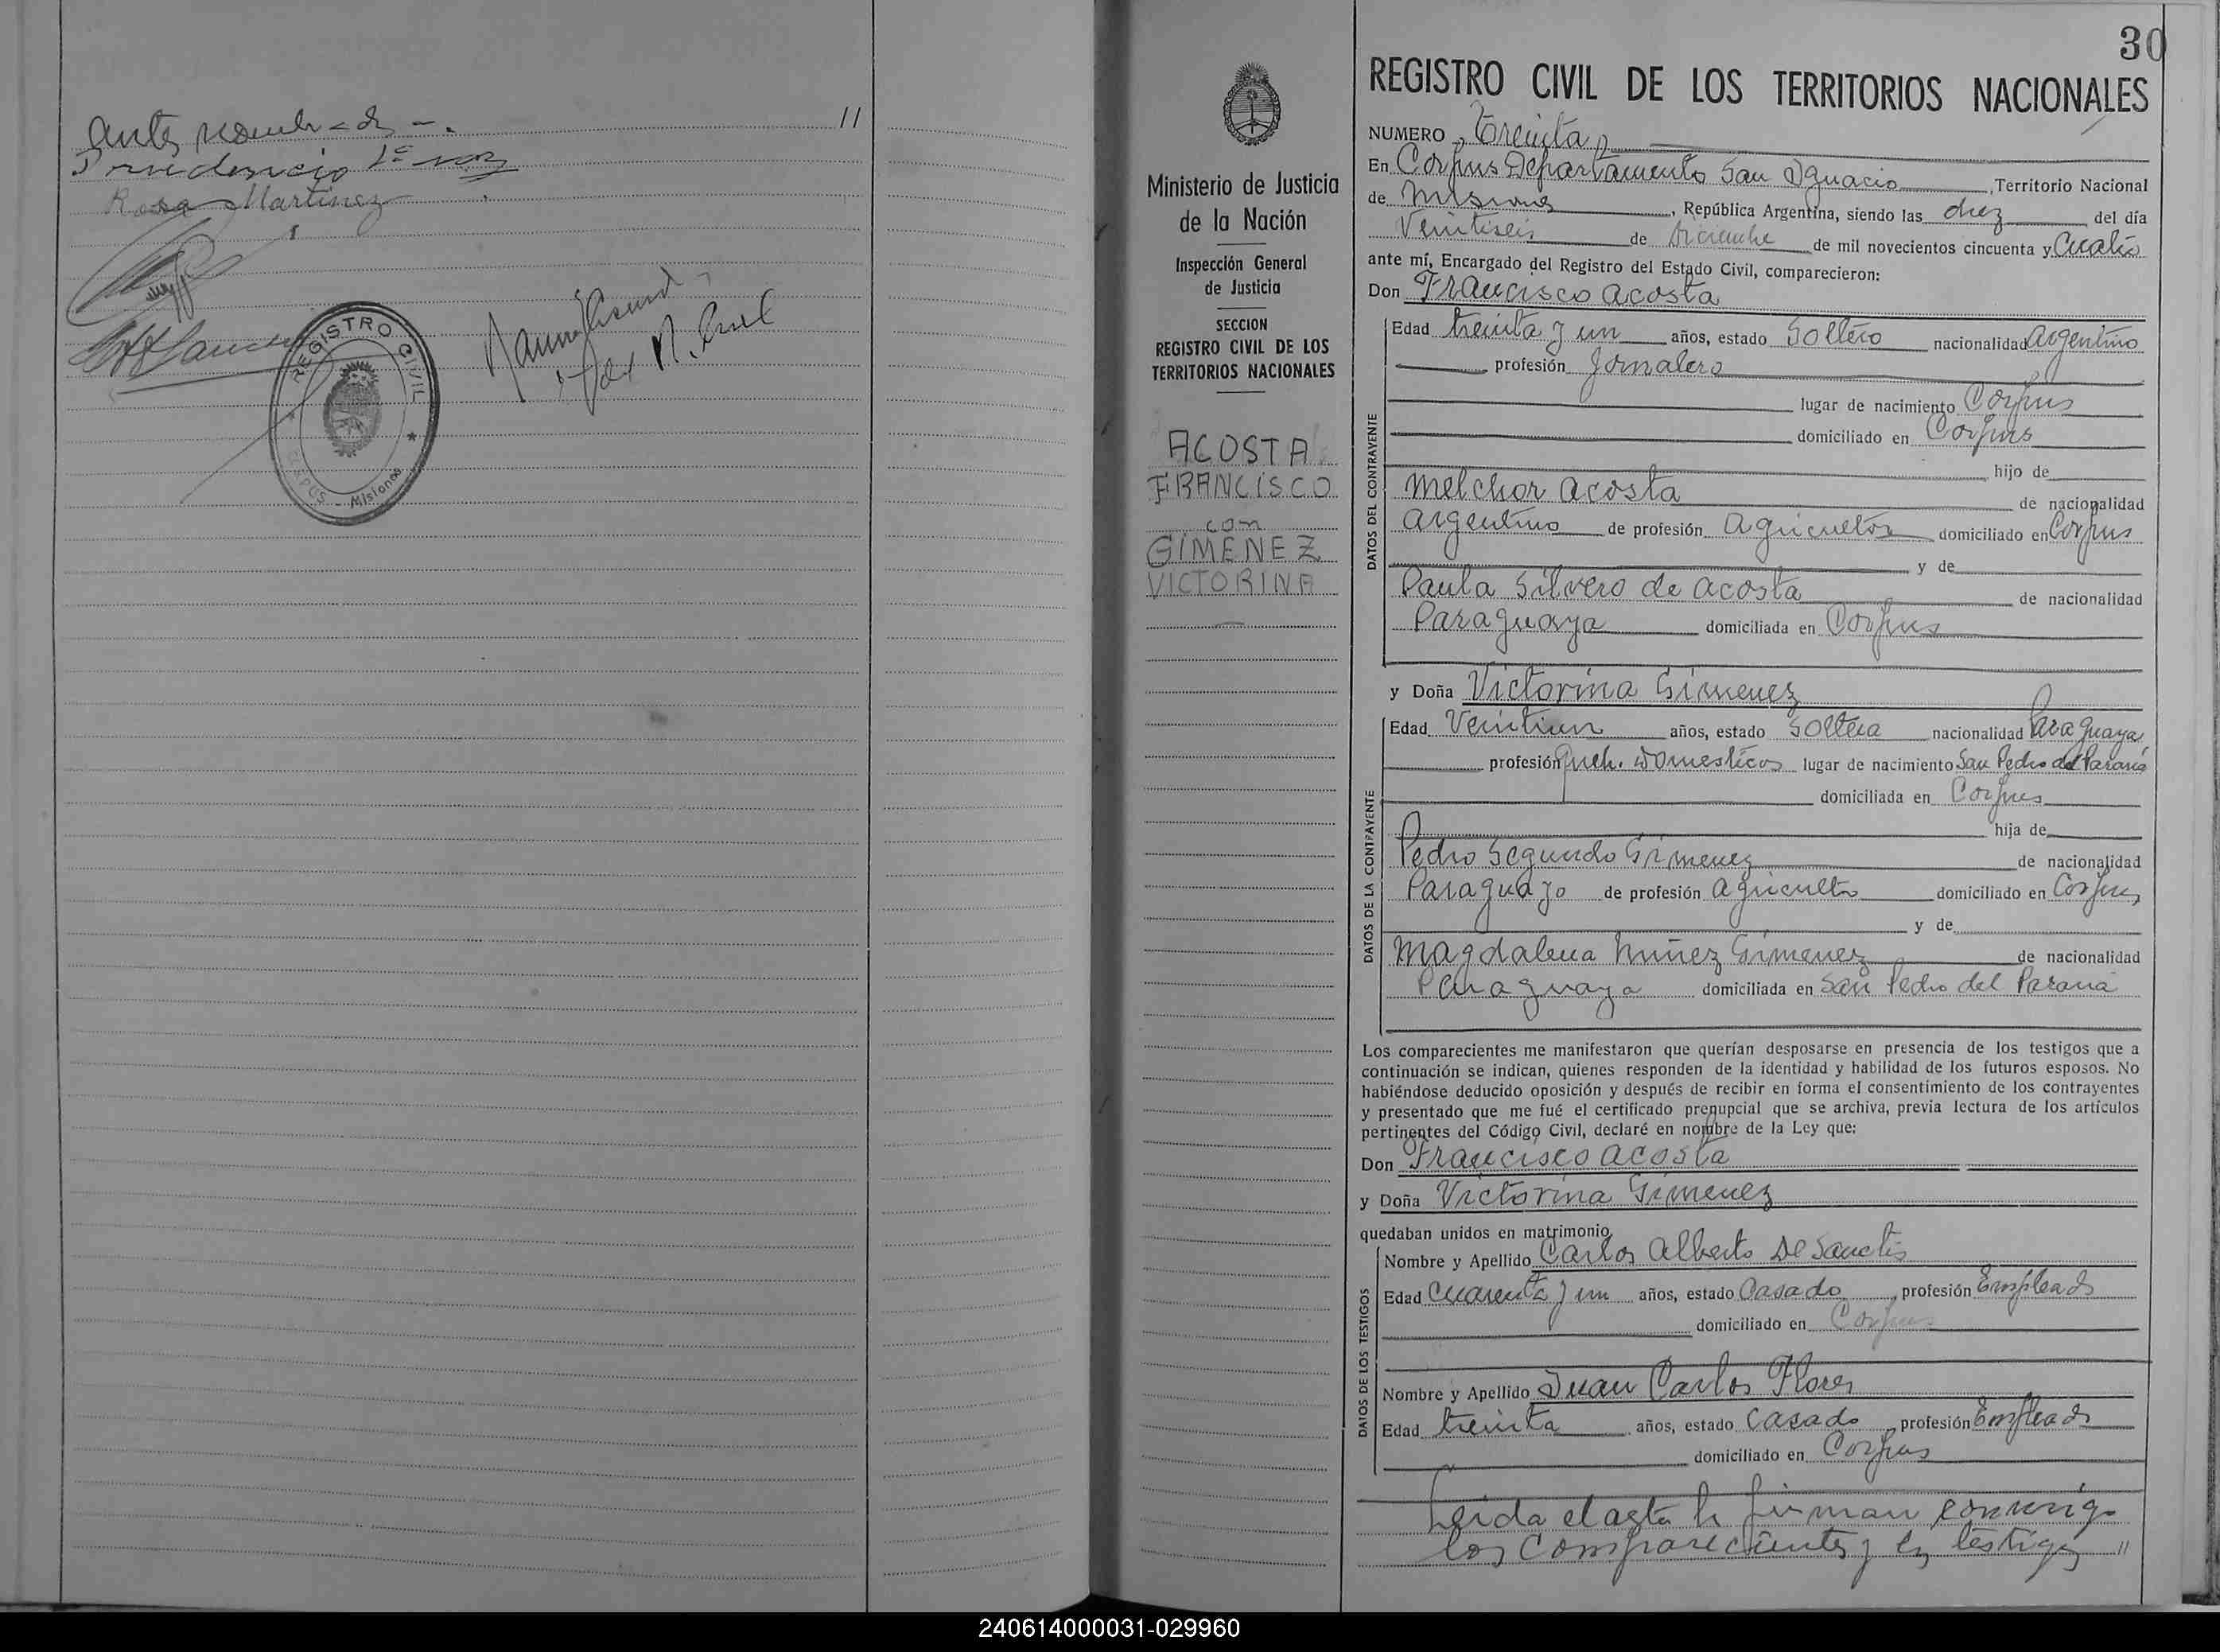 antes nombrados -. //
Rosa Martinez
REGISTRO CIVIL
CORPUS - Misiones
30
REGISTRO CIVIL DE LOS TERRITORIOS NACIONALES
Ministerio de Justicia
de la Nación
Inspección General
de Justicia
SECCION
REGISTRO CIVIL DE LOS
TERRITORIOS NACIONALES
ACOSTA
FRANCISCO
con
GIMENEZ
VICTORINA
NUMERO Treinta
En Corpus Departamento San Ignacio, Territorio Nacional
de Misiones, República Argentina, siendo las diez del día
Veintiseis de Diciembre de mil novecientos cincuenta y Cuatro
ante mí, Encargado del Registro del Estado Civil, comparecieron:
Don Francisco Acosta
DATOS DEL CONTRAYENTE
Edad treinta y un años, estado Soltero nacionalidad Argentino
profesión Jornalero
lugar de nacimiento Corpus
domiciliado en Corpus
hijo de
Melchor Acosta de nacionalidad
argentino de profesión Agricultor domiciliado en Corpus
y de
Paula Silvero de Acosta de nacionalidad
Paraguaya domiciliada en Corpus
y Doña Victorina Gimenez
DATOS DE LA CONTRAYENTE
Edad Veintiun años, estado Soltera nacionalidad Paraguaya
profesión Queh. Domesticos lugar de nacimiento San Pedro del Paraná
domiciliada en Corpus
hija de
Pedro Segundo Gimenez de nacionalidad
Paraguayo de profesión Agricultor domiciliado en Corpus
y de
Magdalena Nuñez Gimenez de nacionalidad
Paraguaya domiciliada en San Pedro del Paraná
Los comparecientes me manifestaron que querían desposarse en presencia de los testigos que a
continuación se indican, quienes responden de la identidad y habilidad de los futuros esposos. No
habiéndose deducido oposición y después de recibir en forma el consentimiento de los contrayentes
y presentado que me fué el certificado prenupcial que se archiva, previa lectura de los artículos
pertinentes del Código Civil, declaré en nombre de la Ley que:
Don Francisco Acosta
y Doña Victorina Gimenez
quedaban unidos en matrimonio
DATOS DE LOS TESTIGOS
Nombre y Apellido Carlos Alberto De Sanctis
Edad Cuarenta y un años, estado Casado, profesión Empleado
domiciliado en Corpus
Nombre y Apellido Juan Carlos Flores
Edad treinta años, estado Casado, profesión Empleado
domiciliado en Corpus
Leida el acta la firman conmigo
los comparecientes y los testigos //
240614000031-029960